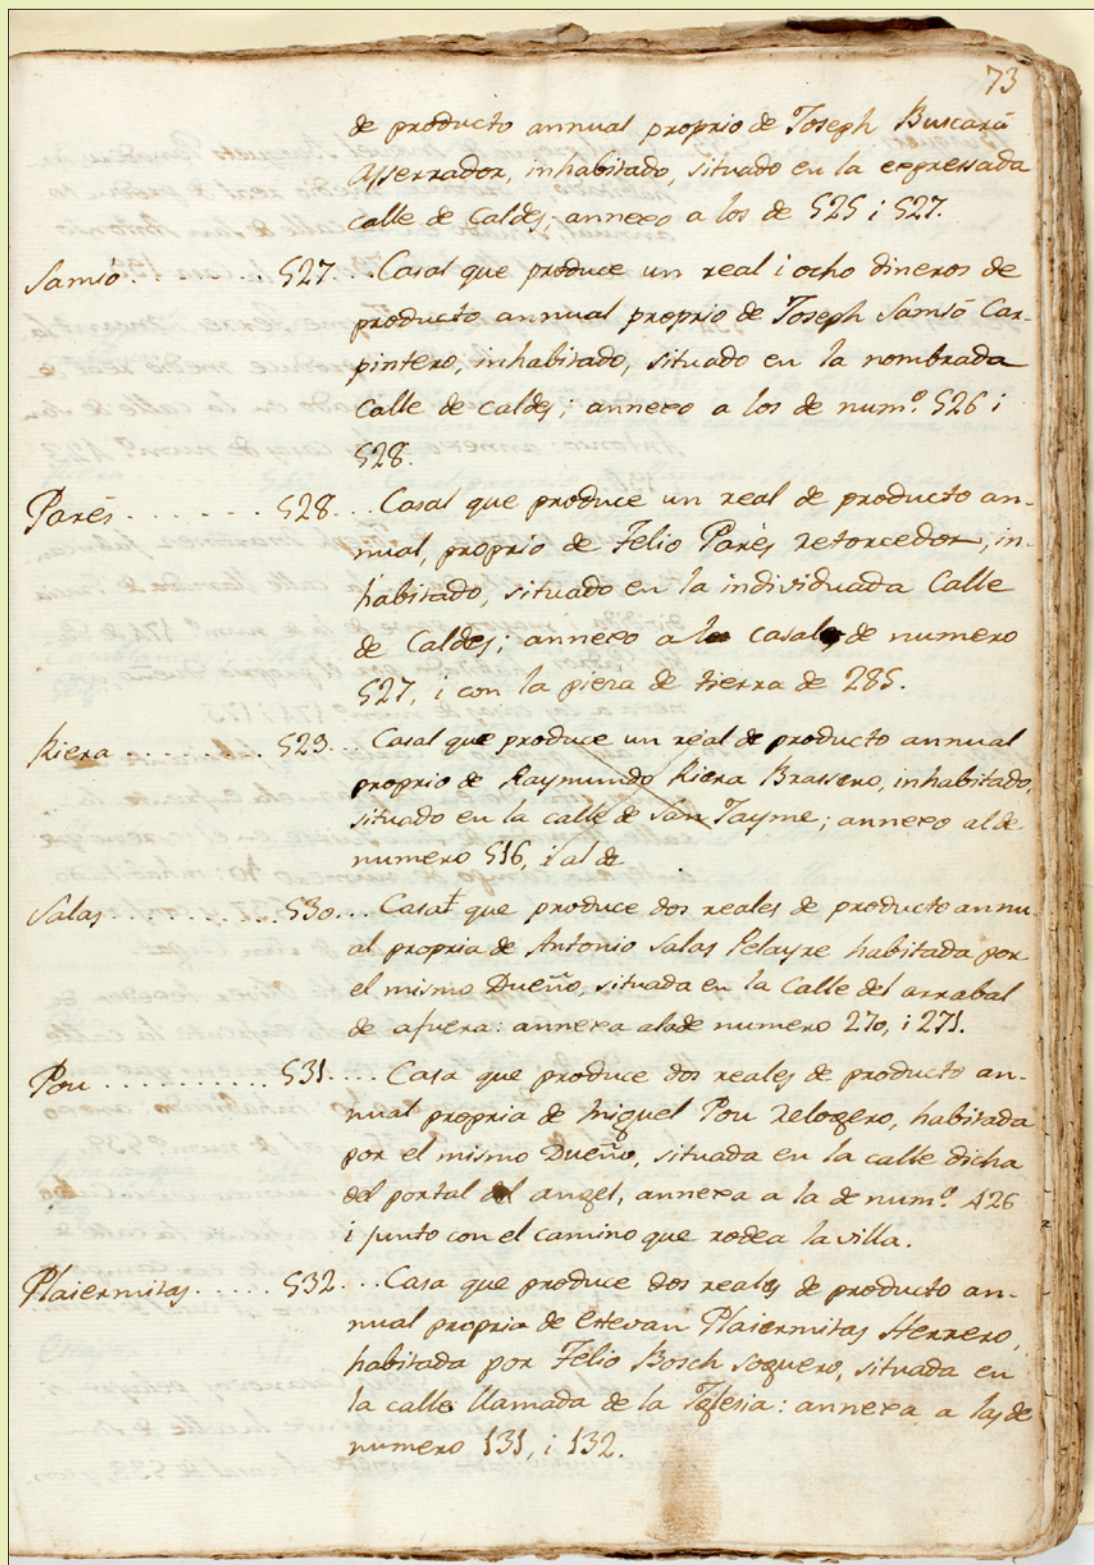 73
de producto annual proprio de Joseph Buscarū
Asserrador, inhabitado, situado en la expressada
calle de Caldes; annexo a los de 525 i 527.
Samsó. . . . . . 527. . . Casal que produce un real i ocho dineros de
producto annual proprio de Joseph Samsó Car-
pintero, inhabitado, situado en la nombrada
Calle de caldes; annexo a los de num.º 526 i
528.
Parés . . . . . . . 528. . . Casal que produce un real de producto an-
nual, proprio de Felio Parés retorcedor, in-
habitado, situado en la individuada Calle
de Caldes; annexo a los casales de numero
527, i con la piera de tierra de 285.
Riera . . . . . . . . 529. . . Casal que produce un real de producto annual
proprio de Raymundo Riera Brassero, inhabitado,
situado en la calle de San Jayme; annexo al de
numero 516, i al de
Salas . . . . . . . . . . 530. . . Casa que produce dos reales de producto annu-
al propria de Antonio Salas Pelayre habitada por
el mismo Dueño, situada en la Calle del arrabal
de afuera: annexa alade numero 270, i 271.
Pou . . . . . . . . . . 531. . . . Casa que produce dos reales de producto an-
nual propria de Miguel Pou Relogero, habitada
por el mismo Dueño, situada en la calle dicha
del portal del angel, annexa a la de num.º 426
i junto con el camino que rodea la villa.
Plaiermitas. . . . . 532. . . Casa que produce dos reales de producto an-
nual propria de Estevan Plaiermitas Herrero,
habitada por Felio Bosch soguero, situada en
la calle llamada de la Iglesia: annexa a las de
numero 131, i 132.